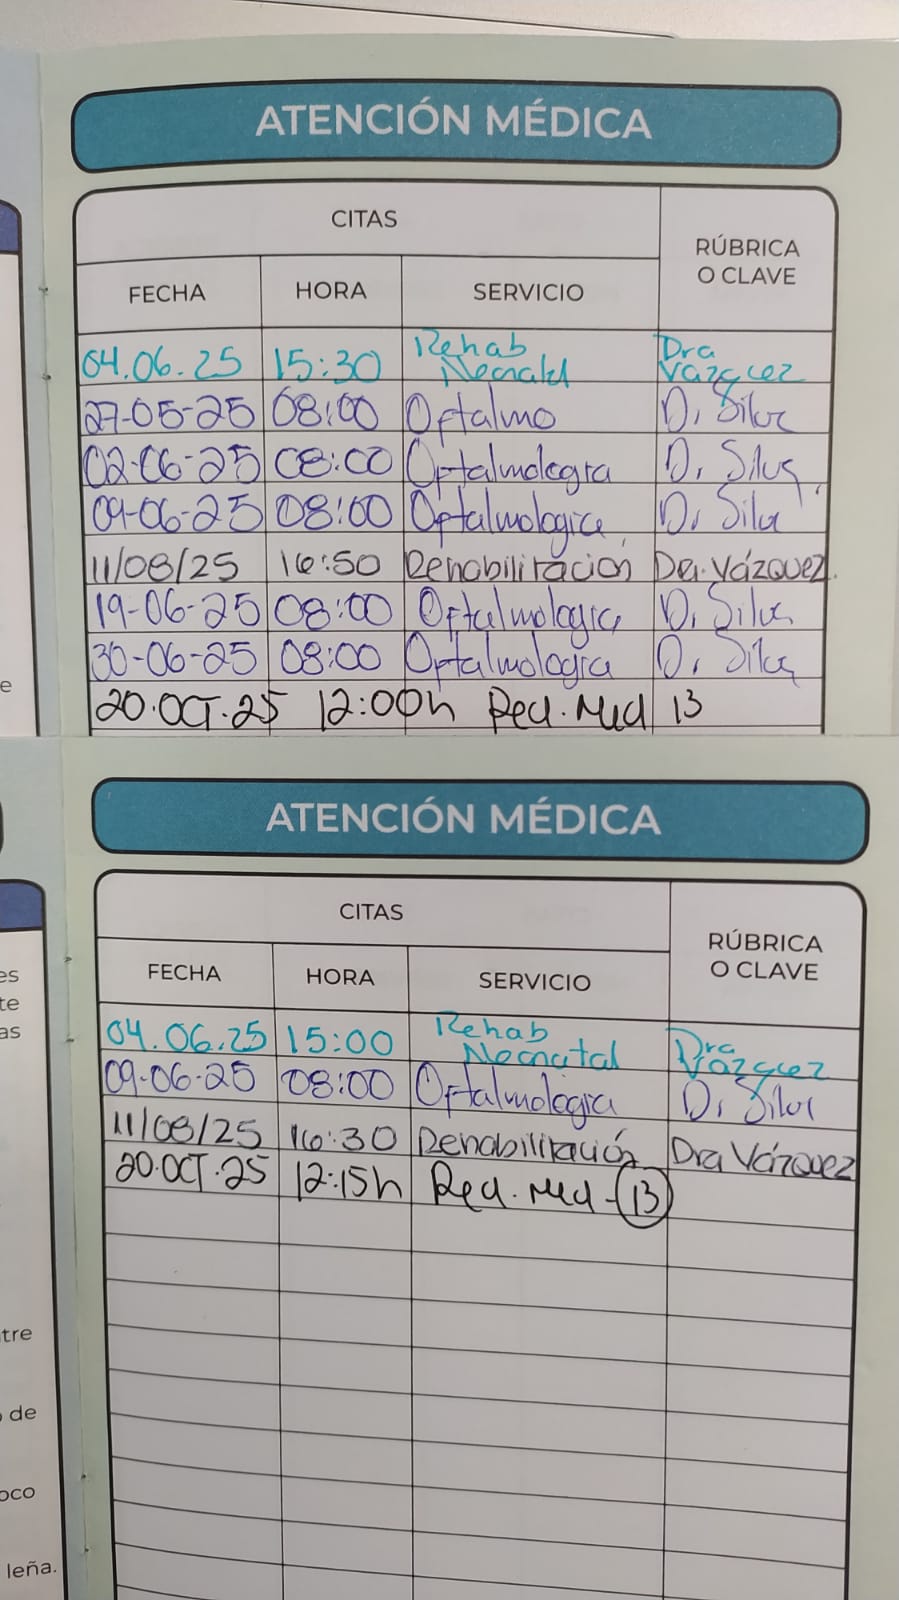 ATENCIÓN MÉDICA
CITAS
RÚBRICA
O CLAVE
FECHA HORA SERVICIO
04.06.25 15:30 Rehab Neonatal Dra Vázquez
27-05-25 08:00 Oftalmo D. Silva
02-06-25 08:00 Oftalmologia D. Silva
09-06-25 08:00 Oftalmologica D. Silva
11/08/25 16:50 Rehabilitación Dra. Vázquez.
19-06-25 08:00 Oftalmologica D. Silva
30-06-25 08:00 Oftalmologia D. Silva
20.OCT.25 12:00h Red. Med 13
e
ATENCIÓN MÉDICA
CITAS
RÚBRICA
O CLAVE
FECHA HORA SERVICIO
04.06.25 15:00 Rehab Neonatal Dra Vázquez
09-06-25 08:00 Oftalmologia D. Silva
11/08/25 16:30 Rehabilitación Dra Vázquez
20.OCT.25 12:15h Red. Med - 13
es
te
as
tre
de
oco
leña.